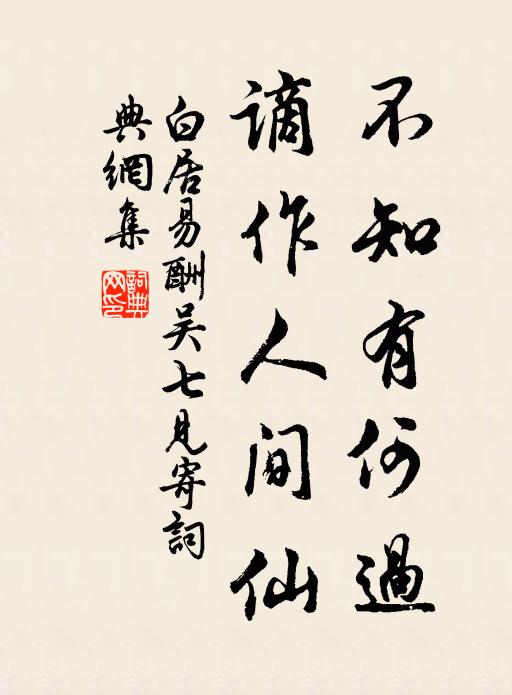 不知有何過
謫作人间仙
白居易酬吴七見寄詞
典網集
詞典
网印